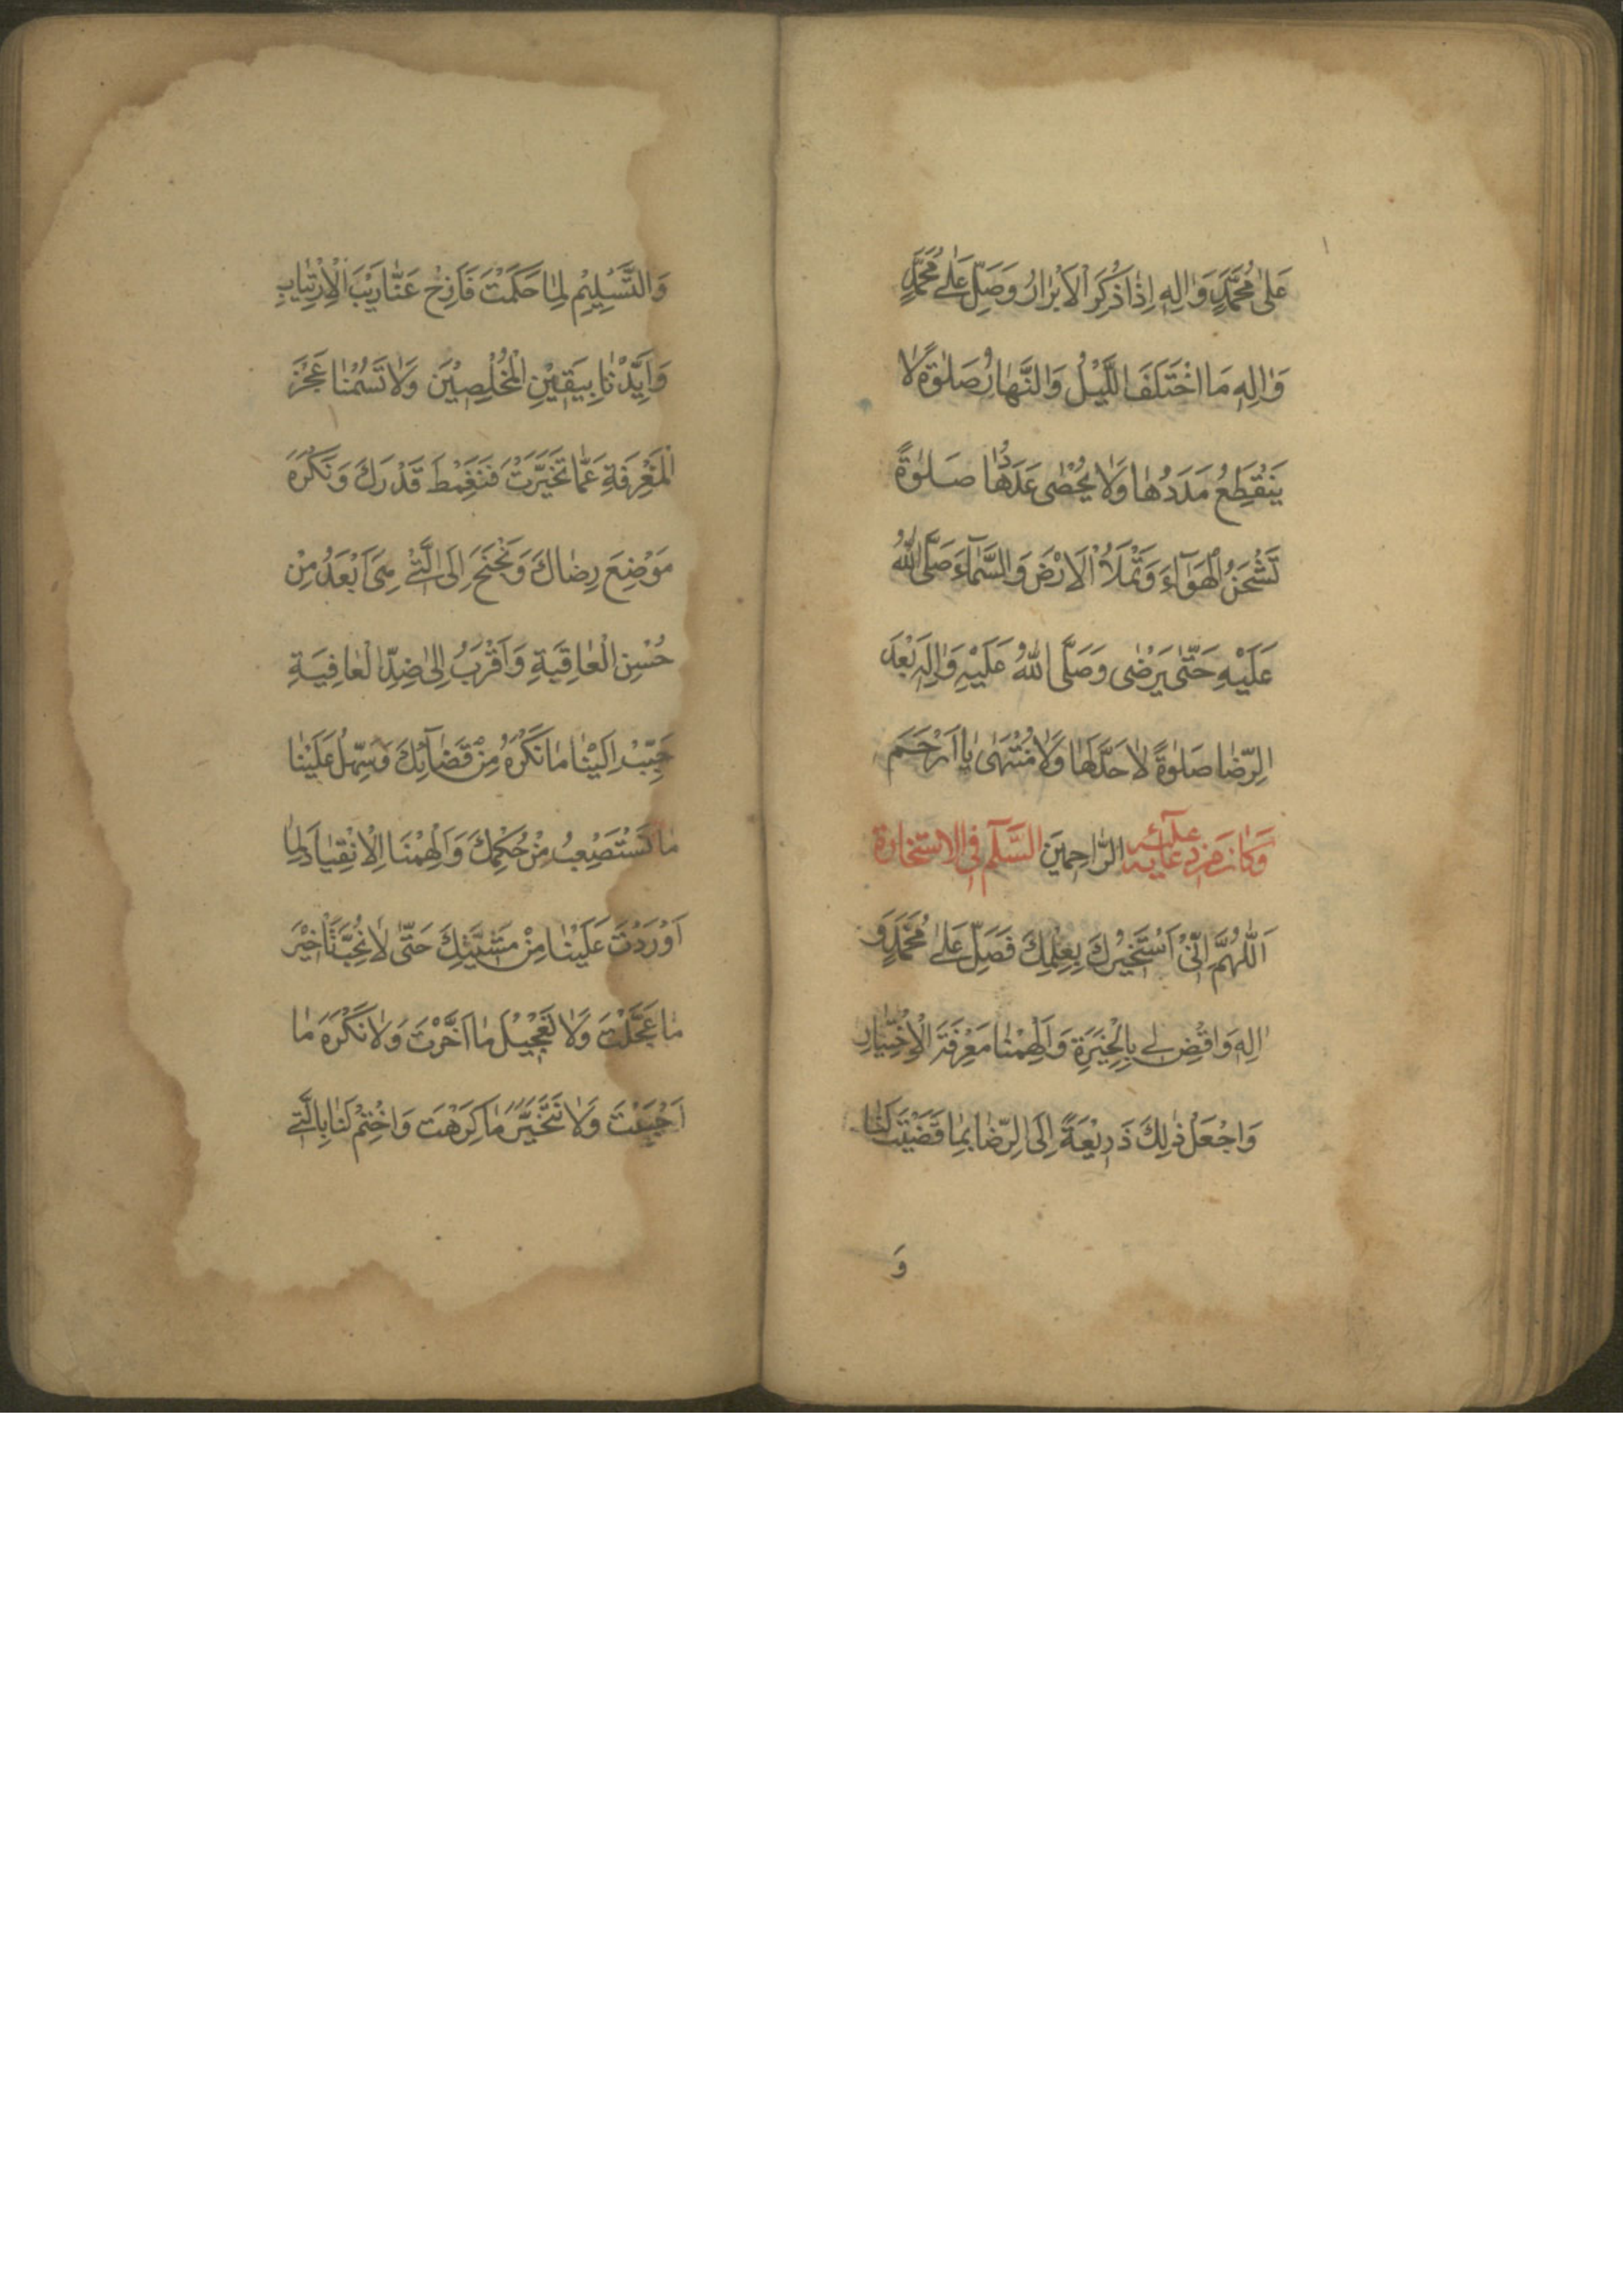 عَلٰى مُحَمَّدٍ وَاٰلِهِ اِذٰا ذُكِرَ الْاَبْرٰارُ وَصَلِّ عَلٰى مُحَمَّدٍ
وَاٰلِهِ مَا اخْتَلَفَ اللَّيْلُ وَالنَّهٰارُ صَلٰوةً لٰا
يَنْقَطِعُ مَدَدُهٰا وَلٰا يُحْصٰى عَدَدُهٰا صَلٰوةً
تَشْحَنُ الْهَوَآءَ وَتَمْلَأُ الْاَرْضَ وَالسَّمٰآءَ صَلَّى اللّٰهُ
عَلَيْهِ حَتّٰى يَرْضٰى وَصَلَّى اللّٰهُ عَلَيْهِ وَاٰلِهِ بَعْدَ
الرِّضٰا صَلٰوةً لٰا حَدَّ لَهٰا وَلٰا مُنْتَهٰى يٰا اَرْحَمَ
الرّٰاحِمِينَ وَكٰانَ مِنْ دُعٰائِهِ عَلَيْهِ السَّلٰم فِى الِاسْتِخٰارَة
اَللّٰهُمَّ اِنّىْ اَسْتَخيْرُكَ بِعِلْمِكَ فَصَلِّ عَلٰى مُحَمَّدٍ وَ
اٰلِهِ وَاقْضِ لى بِالْخِيَرَةِ وَاَلْهِمْنٰا مَعْرِفَةَ الْاِخْتِيٰارِ
وَاجْعَلْ ذٰلِكَ ذَرِيْعَةً اِلَى الرِّضٰا بِمٰا قَضَيْتَ لَنٰا
وَ
وَالتَّسْلِيْمِ لِمٰا حَكَمْتَ فَاَزِحْ عَنّٰا رَيْبَ الْاِرْتِيٰابِ
وَاَيِّدْنٰا بِيَقيْنِ الْمُخْلِصِيْنَ وَلٰا تَسُمْنٰا عَجْزَ
الْمَعْرِفَةِ عَمّٰا تَخَيَّرْتَ فَنَغْمِطَ قَدْرَكَ وَنَكْرَهَ
مَوْضِعَ رِضٰاكَ وَنَجْنَحَ اِلَى الَّتىْ هِىَ اَبْعَدُ مِنْ
حُسْنِ الْعٰاقِبَةِ وَاَقْرَبُ اِلٰى ضِدِّ الْعٰافِيَةِ
حَبِّبْ اِلَيْنٰا مٰا نَكْرَهُ مِنْ قَضٰآئِكَ وَسَهِّلْ عَلَيْنٰا
مٰا نَسْتَصْعِبُ مِنْ حُكْمِكَ وَاَلْهِمْنَا الْاِنْقِيٰادَ لِمٰا
اَوْرَدْتَ عَلَيْنٰا مِنْ مَشِيَّتِكَ حَتّٰى لٰا نُحِبَّ تَاْخيْرَ
مٰا عَجَّلْتَ وَلٰا تَعْجِيْلَ مٰا اَخَّرْتَ وَلٰا نَكْرَهَ مٰا
اَحْبَبْتَ وَلٰا نَتَخَيَّرَ مٰا كَرِهْتَ وَاخْتِمْ لَنٰا بِالَّتى